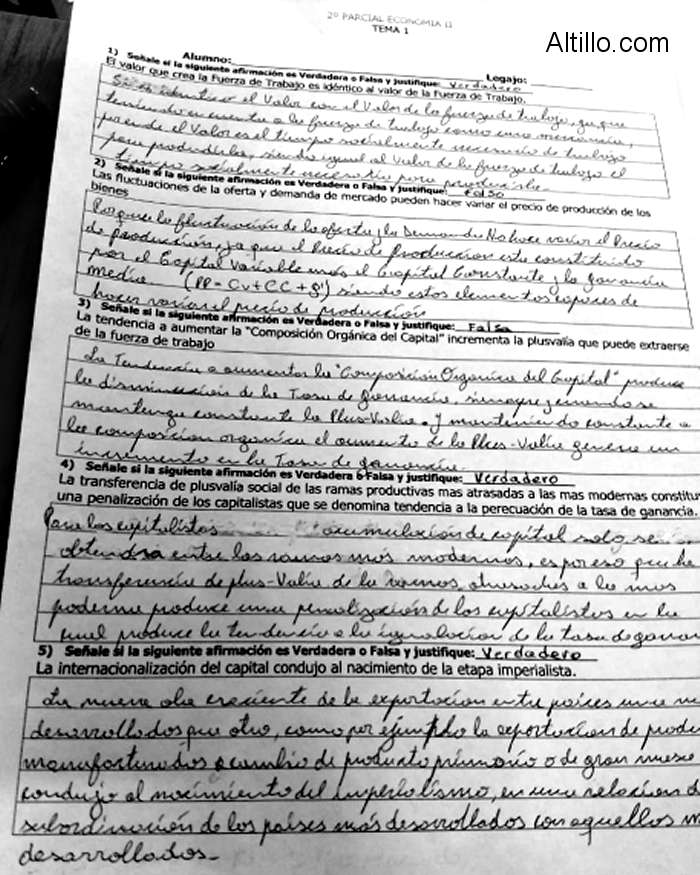 Altillo.com
2º PARCIAL ECONOMIA II
TEMA 1
Alumno: Legajo:
1) Señale si la siguiente afirmación es Verdadera o Falsa y justifique: Verdadero
El valor que crea la Fuerza de Trabajo es idéntico al valor de la Fuerza de Trabajo.
Si es identico el Valor con el Valor de la fuerza de trabajo, ya que
teniendo en cuenta a la fuerza de trabajo como una mercancia,
el Valor es el tiempo socialmente necesario de trabajo
para producirla, siendo igual al Valor de la fuerza de trabajo el
tiempo socialmente necesario para producirla.
2) Señale si la siguiente afirmación es Verdadera o Falsa y justifique: Falso
Las fluctuaciones de la oferta y demanda de mercado pueden hacer variar el precio de producción de los
bienes
Porque la fluctuación de la oferta y la Demanda No hace variar el Precio
de producción, ya que el Precio de Producción esta constituido
por el Capital Variable más el Capital Constante y la ganancia
media (PP = CV + CC + g') siendo estos elementos capaces de
hacer variar el precio de producción
3) Señale si la siguiente afirmación es Verdadera o Falsa y justifique: Falsa
La tendencia a aumentar la "Composición Orgánica del Capital" incrementa la plusvalía que puede extraerse
de la fuerza de trabajo
La Tendencia a aumentar la "Composicion Organica del Capital" produce
la disminucion de la Tasa de ganancia, siempre y cuando se
mantenga constante la Plus-Valia. y manteniendo constante a
la composicion organica el aumento de la Plus-Valia genera un
incremento en la Tasa de ganancia.
4) Señale si la siguiente afirmación es Verdadera o Falsa y justifique: Verdadero
La transferencia de plusvalía social de las ramas productivas mas atrasadas a las mas modernas constitu
una penalización de los capitalistas que se denomina tendencia a la perecuación de la tasa de ganancia.
Para los capitalistas acumulación de capital solo se
obtendra entre las ramas más modernas, es por eso que la
transferencia de plus-Valia de la ramas atrasadas a la mas
moderna produce una penalización de los capitalistas en la
cual produce la tendencia a la igualacion de la tasa de ganan
5) Señale si la siguiente afirmación es Verdadera o Falsa y justifique: Verdadero
La internacionalización del capital condujo al nacimiento de la etapa imperialista.
La nueva ola creciente de la exportacion entre paises uno m
desarrollados que otro, como por ejemplo la exportacion de produ
manufacturados a cambio de producto primario o de gran
condujo al nacimiento del imperialismo, en una relacion d
subordinación de los paises más desarrollados con aquellos m
desarrollados.